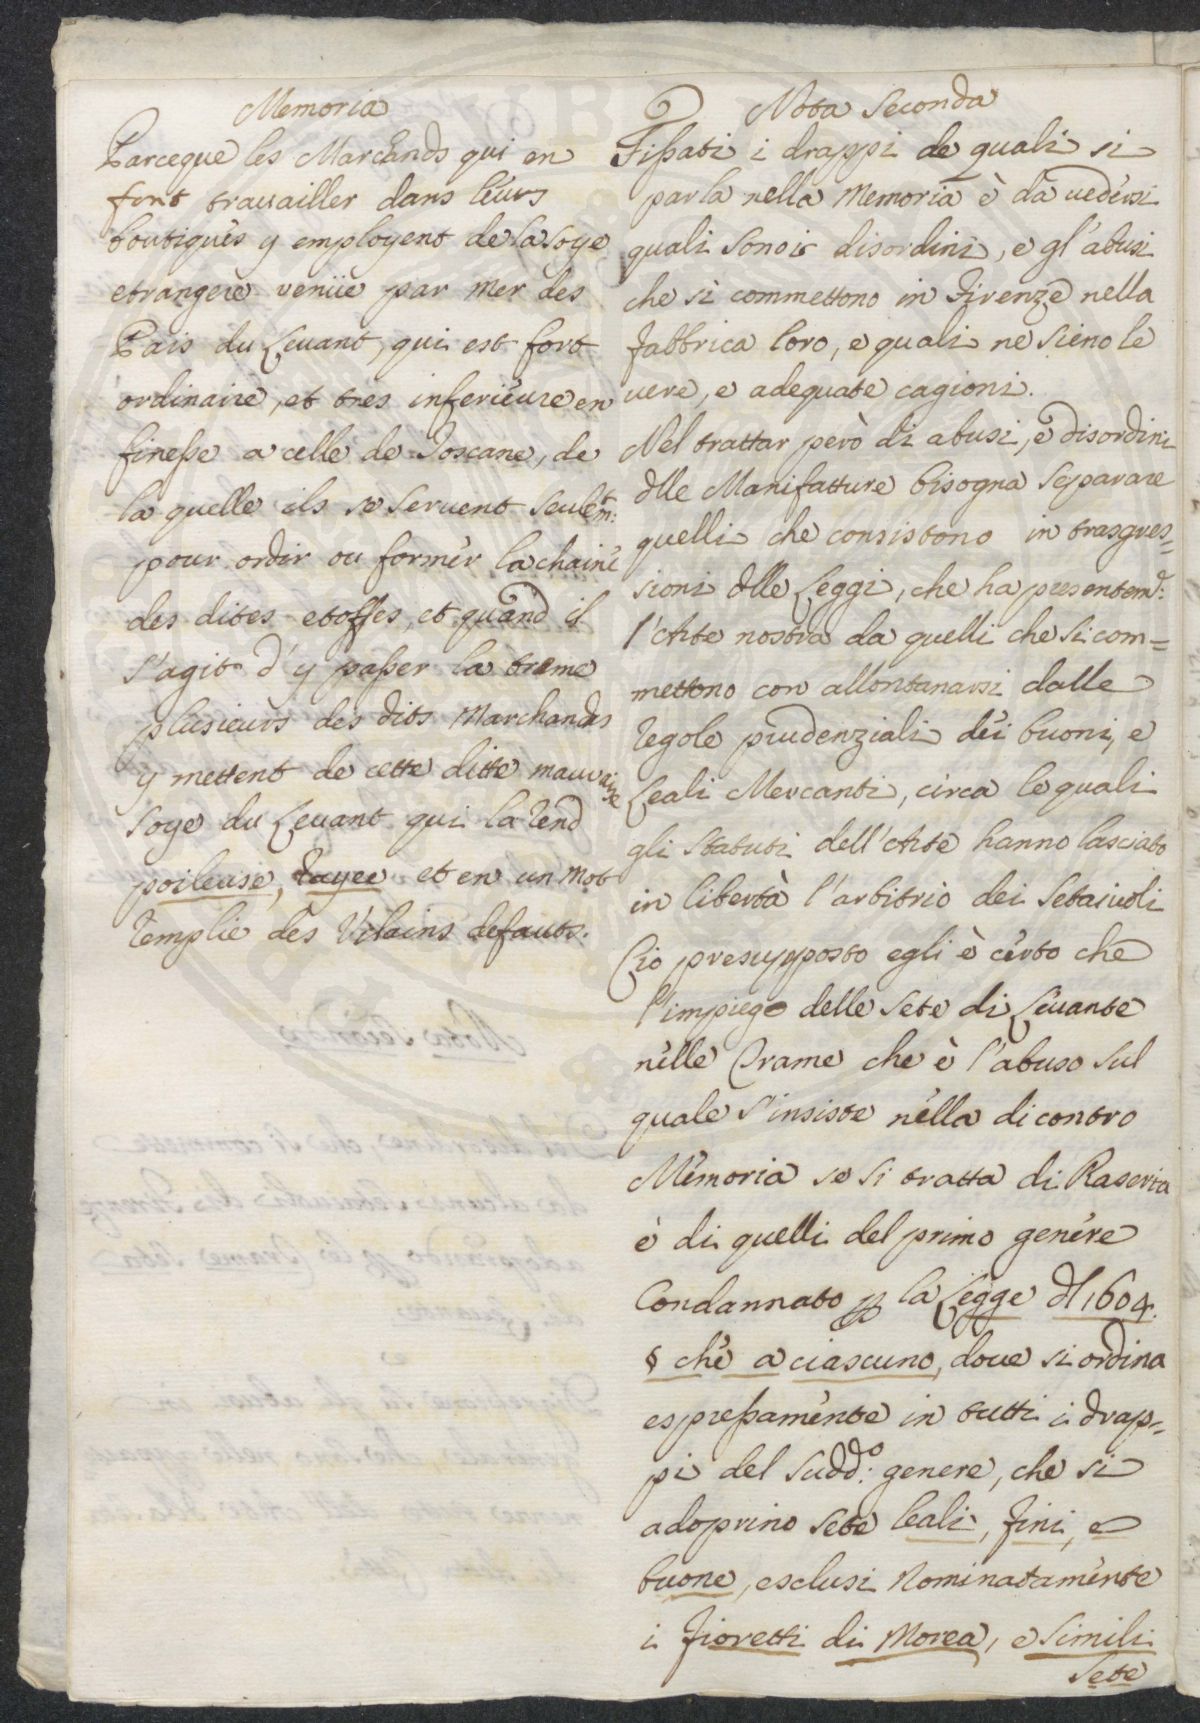 Memoria
Parceque les Marchands qui en
font travailler dans leurs
boutiques y employent de la Soye
etrangere venüe par Mer des
Païs du Levant, qui est fort
ordinaire, et tres inferieure en
finesse a celle de Toscane, de
la quelle ils se servent seulemt:
pour ordir ou former la chaine
des dites etoffes, et quand il
s'agit d'y passer la treme
plusieurs des dits Marchands
y mettent de cette ditte mauvaise
Soye du Levant qui la rend
poileuse, rayee et en un Mot
remplie des Vilains defauts.
Nota Seconda
Fissati i drappi de quali si
parla nella Memoria è da vedersi
quali sono i disordini, e gl'abusi
che si commettono in Firenze nella
fabbrica loro, e quali ne sieno le
vere, e adequate cagioni.
Nel trattar però di abusi, e disordini
dlle Manifatture bisogna separare
quelli che consistono in trasgres=
sioni dlle Leggi, che ha presentemd:
l'Arte nostra da quelli che si com=
mettono con allontanarsi dalle
regole prudenziali dei buoni, e
Leali Mercanti, circa le quali
gli Statuti dell'Arte hanno lasciato
in libertà l'arbitrio dei Setaiuoli
Cio presupposto egli è certo che
l'impiego delle Sete di Levante
nelle Trame che è l'abuso sul
quale s'insiste nella di contro
Memoria se si tratta di Raseria
è di quelli del primo genere
Condannato p la Legge dl 1604.
§ che a ciascuno, dove si ordina
espressamente in tutti i drap=
pi del Sudd:o genere, che si
adoprino Sete leali, fini, e
buone, esclusi Nominatamente
i Fioretti di Morea, e Simili
Sete